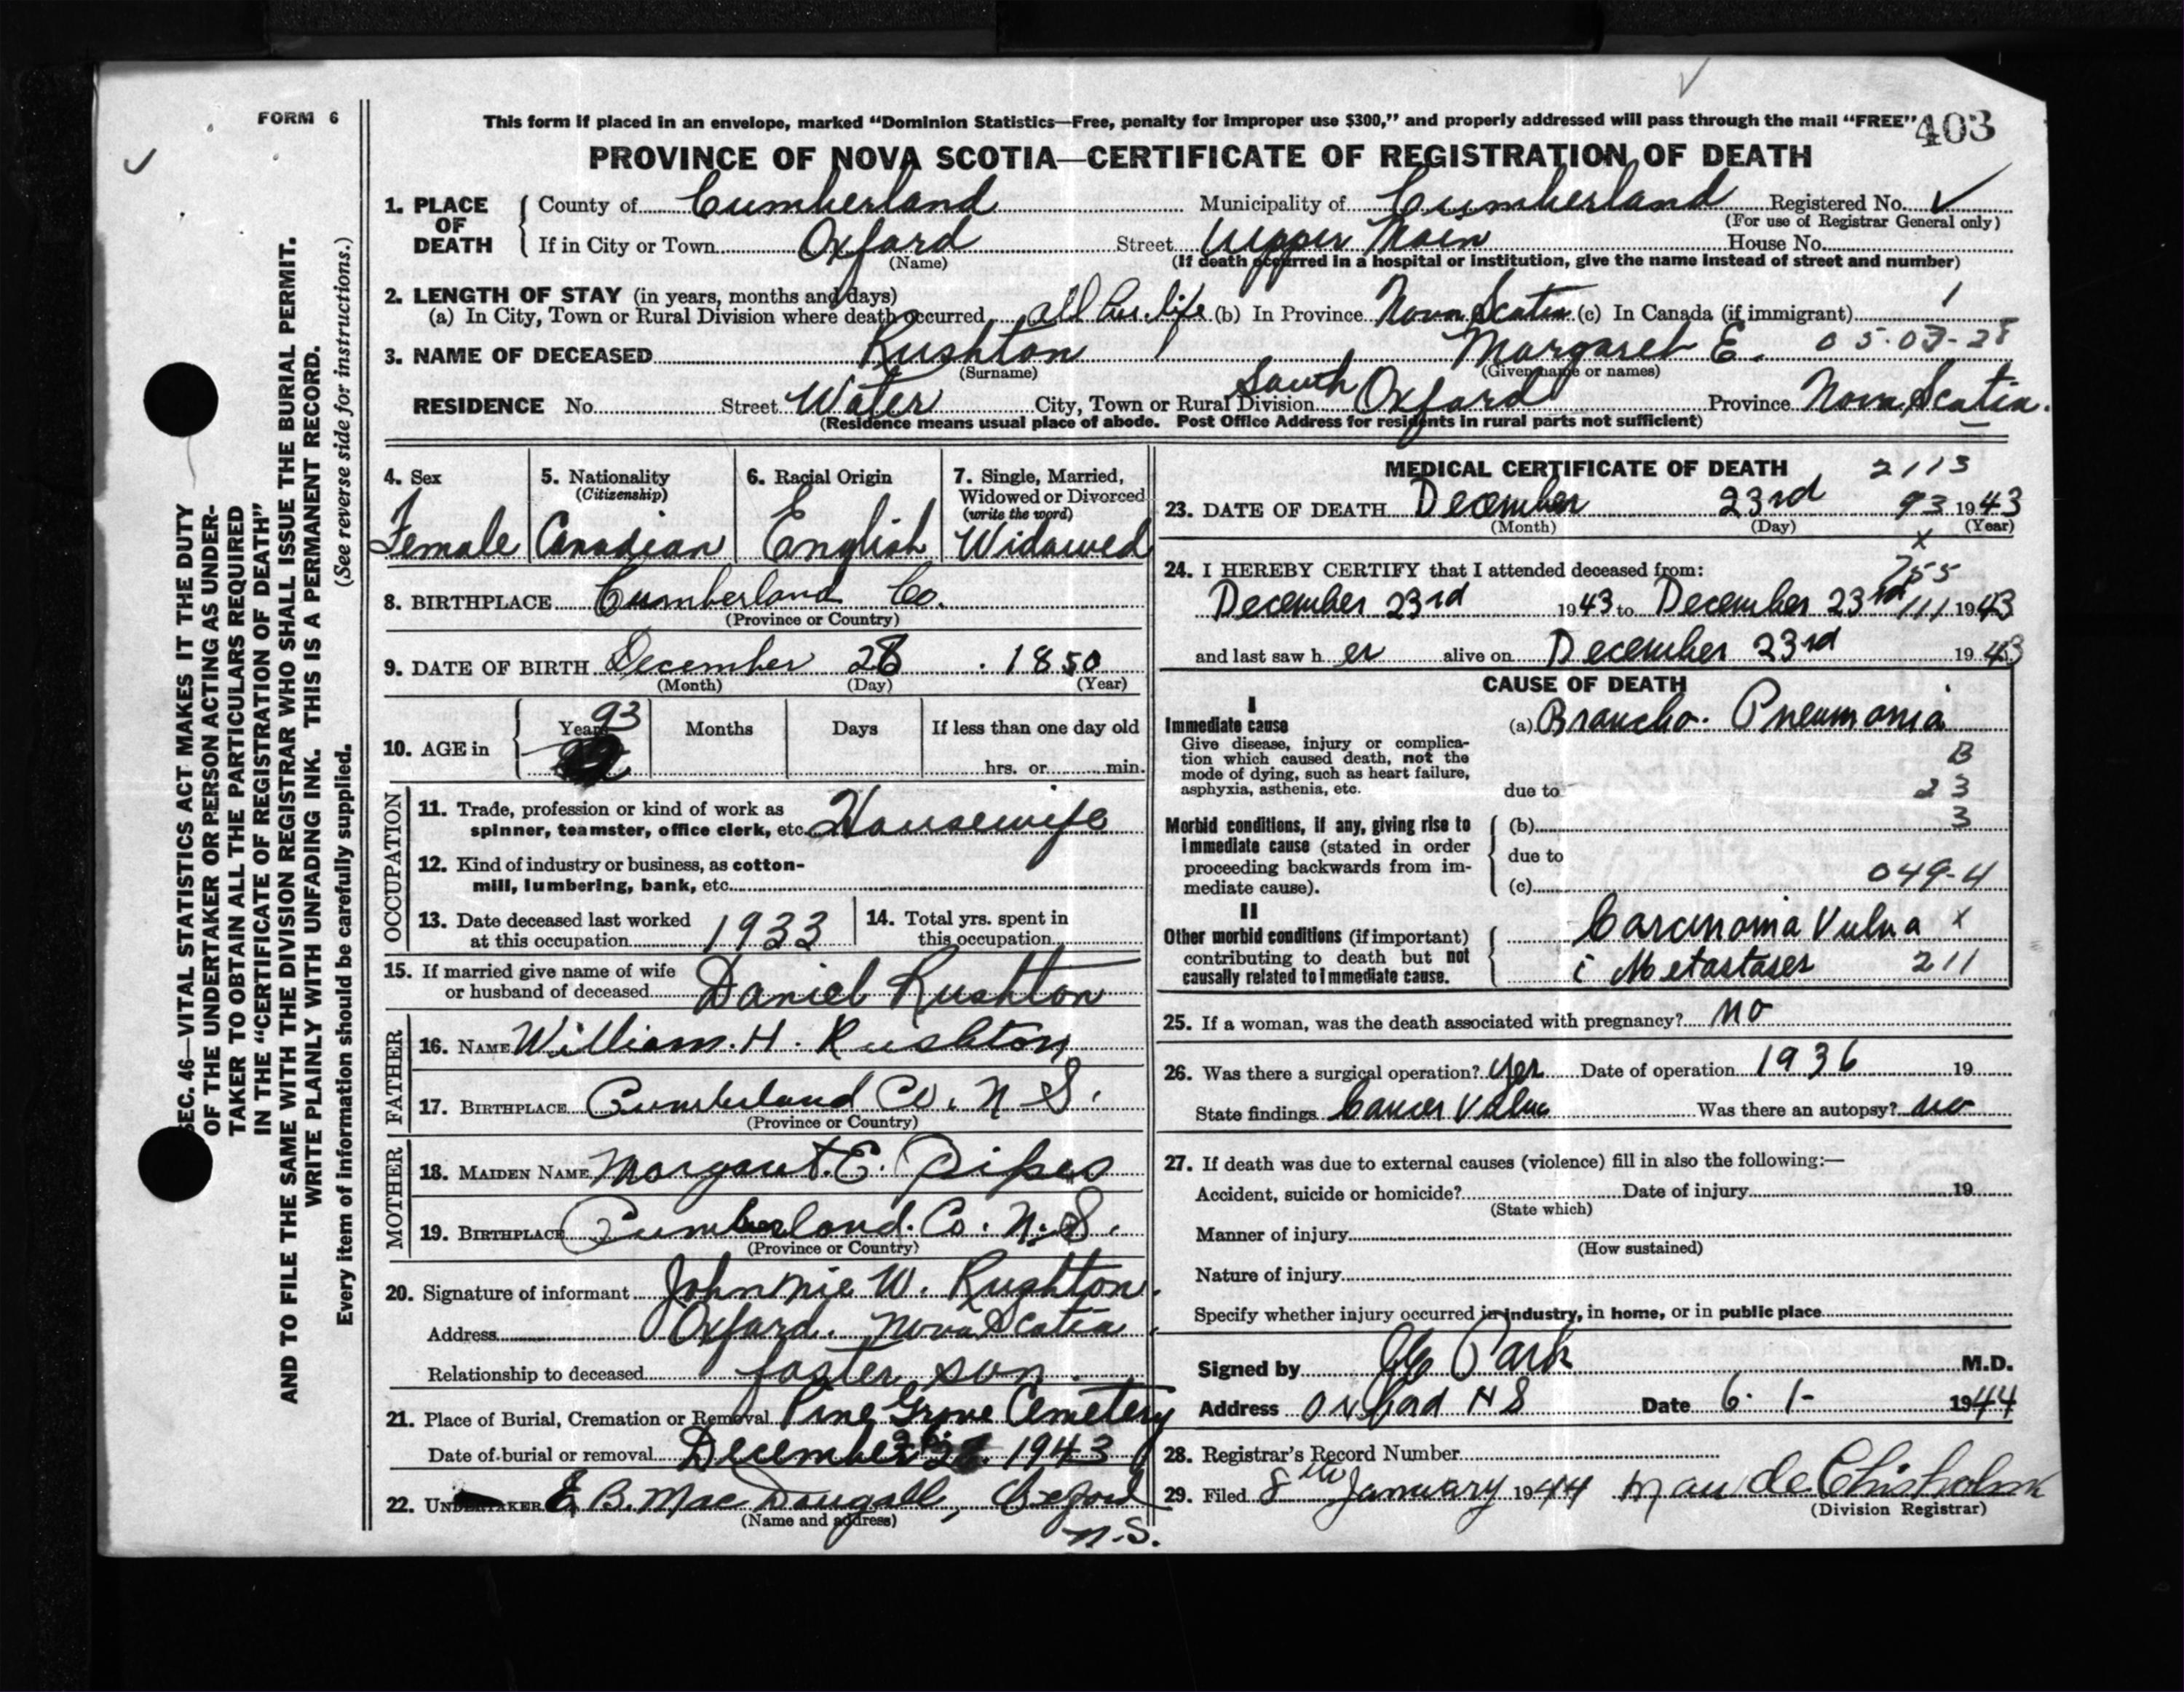 FORM 6
This form if placed in an envelope, marked "Dominion Statistics—Free, penalty for improper use $300," and properly addressed will pass through the mail "FREE"
403
PROVINCE OF NOVA SCOTIA—CERTIFICATE OF REGISTRATION OF DEATH
1. PLACE OF DEATH
County of Cumberland Municipality of Cumberland Registered No. ✓
(For use of Registrar General only)
If in City or Town Oxford Street Upper Main House No.
(Name)
(If death occurred in a hospital or institution, give the name instead of street and number)
2. LENGTH OF STAY (in years, months and days)
(a) In City, Town or Rural Division where death occurred all her life (b) In Province Nova Scotia (c) In Canada (if immigrant)
3. NAME OF DECEASED Rushton Margaret E. 05-03-28
(Surname) (Given name or names)
RESIDENCE No. Street Water City, Town or Rural Division South Oxford Province Nova Scotia.
(Residence means usual place of abode. Post Office Address for residents in rural parts not sufficient)
4. Sex
Female
5. Nationality
(Citizenship)
Canadian
6. Racial Origin
English
7. Single, Married,
Widowed or Divorced
(write the word)
Widowed
8. BIRTHPLACE Cumberland Co.
(Province or Country)
9. DATE OF BIRTH December 28 1850
(Month) (Day) (Year)
10. AGE in
Years 93 Months Days If less than one day old
hrs. or min.
OCCUPATION
11. Trade, profession or kind of work as
spinner, teamster, office clerk, etc. Housewife
12. Kind of industry or business, as cotton-
mill, lumbering, bank, etc.
13. Date deceased last worked
at this occupation 1933
14. Total yrs. spent in
this occupation
15. If married give name of wife
or husband of deceased Daniel Rushton
FATHER
16. NAME William. H. Rushton
17. BIRTHPLACE Cumberland Co. N S.
(Province or Country)
MOTHER
18. MAIDEN NAME Margaret. E. Pipes
19. BIRTHPLACE Cumberland. Co. N. S.
(Province or Country)
20. Signature of informant Johnnie W. Rushton.
Address Oxford. Nova Scotia
Relationship to deceased foster son.
21. Place of Burial, Cremation or Removal Pine Grove Cemetery
Date of burial or removal December 1943
22. UNDERTAKER E. B. MacDougall, Oxford
(Name and address)
N.S.
MEDICAL CERTIFICATE OF DEATH 2113
23. DATE OF DEATH December 23rd 93 1943
(Month) (Day) (Year)
x
24. I HEREBY CERTIFY that I attended deceased from: 755
December 23rd 1943 to December 23rd 111 1943
and last saw her alive on December 23rd 1943
CAUSE OF DEATH
I
Immediate cause (a) Broncho. Pneumonia
Give disease, injury or complica-
tion which caused death, not the
mode of dying, such as heart failure,
asphyxia, asthenia, etc.
B
due to 23
Morbid conditions, if any, giving rise to
immediate cause (stated in order
proceeding backwards from im-
mediate cause).
(b) 3
due to
(c) 049-4
II
Other morbid conditions (if important)
contributing to death but not
causally related to immediate cause.
Carcinoma Vulva x
c̄ Metastases 211
25. If a woman, was the death associated with pregnancy? no
26. Was there a surgical operation? yes Date of operation 1936 19
State findings Cancer Vulva Was there an autopsy? no
27. If death was due to external causes (violence) fill in also the following:—
Accident, suicide or homicide? Date of injury 19
(State which)
Manner of injury
(How sustained)
Nature of injury
Specify whether injury occurred in industry, in home, or in public place
Signed by Park M.D.
Address Oxford N S Date 6-1- 1944
28. Registrar's Record Number
29. Filed 8th January 1944 Maude Chisholm
(Division Registrar)
SEC. 46—VITAL STATISTICS ACT MAKES IT THE DUTY
OF THE UNDERTAKER OR PERSON ACTING AS UNDER-
TAKER TO OBTAIN ALL THE PARTICULARS REQUIRED
IN THE "CERTIFICATE OF REGISTRATION OF DEATH"
AND TO FILE THE SAME WITH THE DIVISION REGISTRAR WHO SHALL ISSUE THE BURIAL PERMIT.
WRITE PLAINLY WITH UNFADING INK. THIS IS A PERMANENT RECORD.
Every item of information should be carefully supplied. (See reverse side for instructions.)